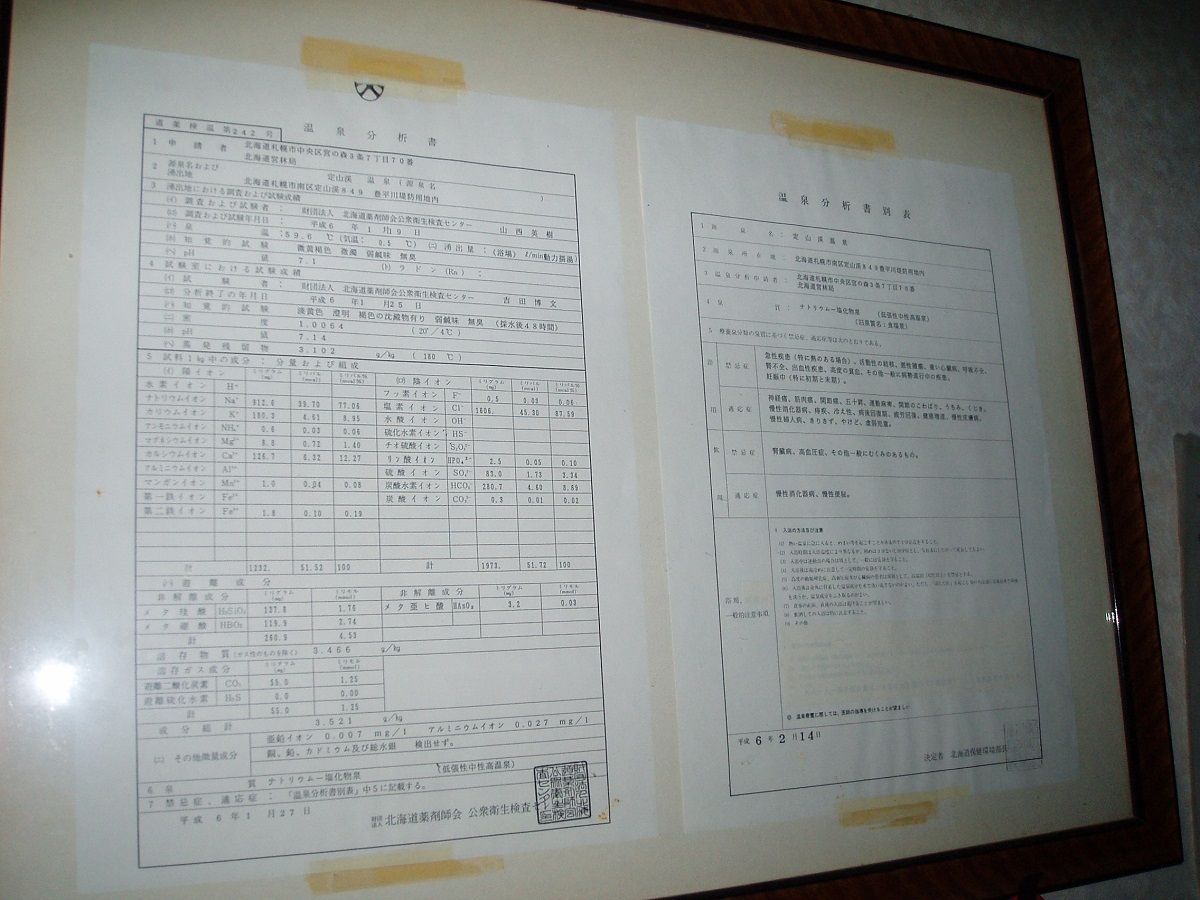 道薬検温第242号
温泉分析書
1 申請者 北海道札幌市中央区宮の森3条7丁目70番
北海道営林局
2 源泉名および湧出地 定山渓 温泉(源泉名 )
北海道札幌市南区定山渓849 豊平川堤防用地内
3 湧出地における調査および試験成績
(イ) 調査および試験者 : 財団法人 北海道薬剤師会公衆衛生検査センター 山西英樹
(ロ) 調査および試験年月日 : 平成6年1月19日
(ハ) 泉温 : 59.6 ℃ (気温: 0.5 ℃) (ニ) 湧出量 : (浴場) ℓ/min動力揚湯
(ホ) 知覚的試験 微黄褐色 微濁 弱鹹味 無臭
(ヘ) pH値 7.1 (ト) ラドン (Rn) :
4 試験室における試験成績
(イ) 試験者 : 財団法人 北海道薬剤師会公衆衛生検査センター 吉田博文
(ロ) 分析終了の年月日 平成6年1月25日
(ハ) 知覚的試験 淡黄色 澄明 褐色の沈澱物有り 弱鹹味 無臭 (採水後48時間)
(ニ) 密度 1.0064 (20°/4℃)
(ホ) pH値 7.14
(ヘ) 蒸発残留物 3.102 g/kg (180℃)
5 試料1kg中の成分 : 分量および組成
(イ) 陽イオン ミリグラム (mg) ミリバル (mval) ミリバル% (mval%)
水素イオン H⁺
ナトリウムイオン Na⁺ 912.6 39.70 77.06
カリウムイオン K⁺ 180.3 4.61 8.95
アンモニウムイオン NH₄⁺ 0.6 0.03 0.06
マグネシウムイオン Mg²⁺ 8.8 0.72 1.40
カルシウムイオン Ca²⁺ 126.7 6.32 12.27
アルミニウムイオン Al³⁺
マンガンイオン Mn²⁺ 1.0 0.04 0.08
第一鉄イオン Fe²⁺
第二鉄イオン Fe³⁺ 1.8 0.10 0.19
計 1232. 51.52 100
(ロ) 陰イオン ミリグラム (mg) ミリバル (mval) ミリバル% (mval%)
フッ素イオン F⁻ 0.5 0.03 0.06
塩素イオン Cl⁻ 1606. 45.30 87.59
水酸イオン OH⁻
硫化水素イオン HS⁻
チオ硫酸イオン S₂O₃²⁻
リン酸イオン HPO₄²⁻ 2.5 0.05 0.10
硫酸イオン SO₄²⁻ 83.0 1.73 3.34
炭酸水素イオン HCO₃⁻ 280.7 4.60 8.89
炭酸イオン CO₃²⁻ 0.3 0.01 0.02
計 1973. 51.72 100
(ハ) 遊離成分
非解離成分 ミリグラム (mg) ミリモル (mmol)
メタ珪酸 H₂SiO₃ 137.8 1.76
メタ硼酸 HBO₂ 119.9 2.74
計 260.9 4.53
非解離成分 ミリグラム (mg) ミリモル (mmol)
メタ亜ヒ酸 HAsO₂ 3.2 0.03
溶存物質 (ガス性のものを除く) 3.466 g/kg
溶存ガス成分 ミリグラム (mg) ミリモル (mmol)
遊離二酸化炭素 CO₂ 55.0 1.25
遊離硫化水素 H₂S 0.0 0.00
計 55.0 1.25
成分総計 3.521 g/kg
(ニ) その他微量成分 亜鉛イオン 0.007 mg/l アルミニウムイオン 0.027 mg/l
銅、鉛、カドミウム及び総水銀 検出せず。
6 泉質 ナトリウム−塩化物泉 (低張性中性高温泉)
7 禁忌症、適応症 : 「温泉分析書別表」中5に記載する。
平成6年1月27日
財団法人 北海道薬剤師会 公衆衛生検査セ
温泉分析書別表
1 源泉名 : 定山渓温泉
2 源泉所在地 : 北海道札幌市南区定山渓849豊平川堤防用地内
3 温泉分析申請者 : 北海道札幌市中央区宮の森3条7丁目70番
北海道営林局
4 泉質 : ナトリウム−塩化物泉 (低張性中性高温泉)
(旧泉質名:食塩泉)
5 療養泉分類の泉質に基づく禁忌症、適応症等は次のとおりである。
浴用
禁忌症
急性疾患(特に熱のある場合)、活動性の結核、悪性腫瘍、重い心臓病、呼吸不全、
腎不全、出血性疾患、高度の貧血、その他一般に病勢進行中の疾患、
妊娠中(特に初期と末期)。
適応症
神経痛、筋肉痛、関節痛、五十肩、運動麻痺、関節のこわばり、うちみ、くじき、
慢性消化器病、痔疾、冷え性、病後回復期、疲労回復、健康増進、慢性皮膚病、
慢性婦人病、きりきず、やけど、虚弱児童。
飲用
禁忌症 腎臓病、高血圧症、その他一般にむくみのあるもの。
適応症 慢性消化器病、慢性便秘。
浴用、
一般的注意事項
入浴の方法及び注意
(9) その他
◎ 温泉療養に際しては、医師の指導を受けることが望ましい
平成 6年 2月 14日
決定者 北海道保健環境部長